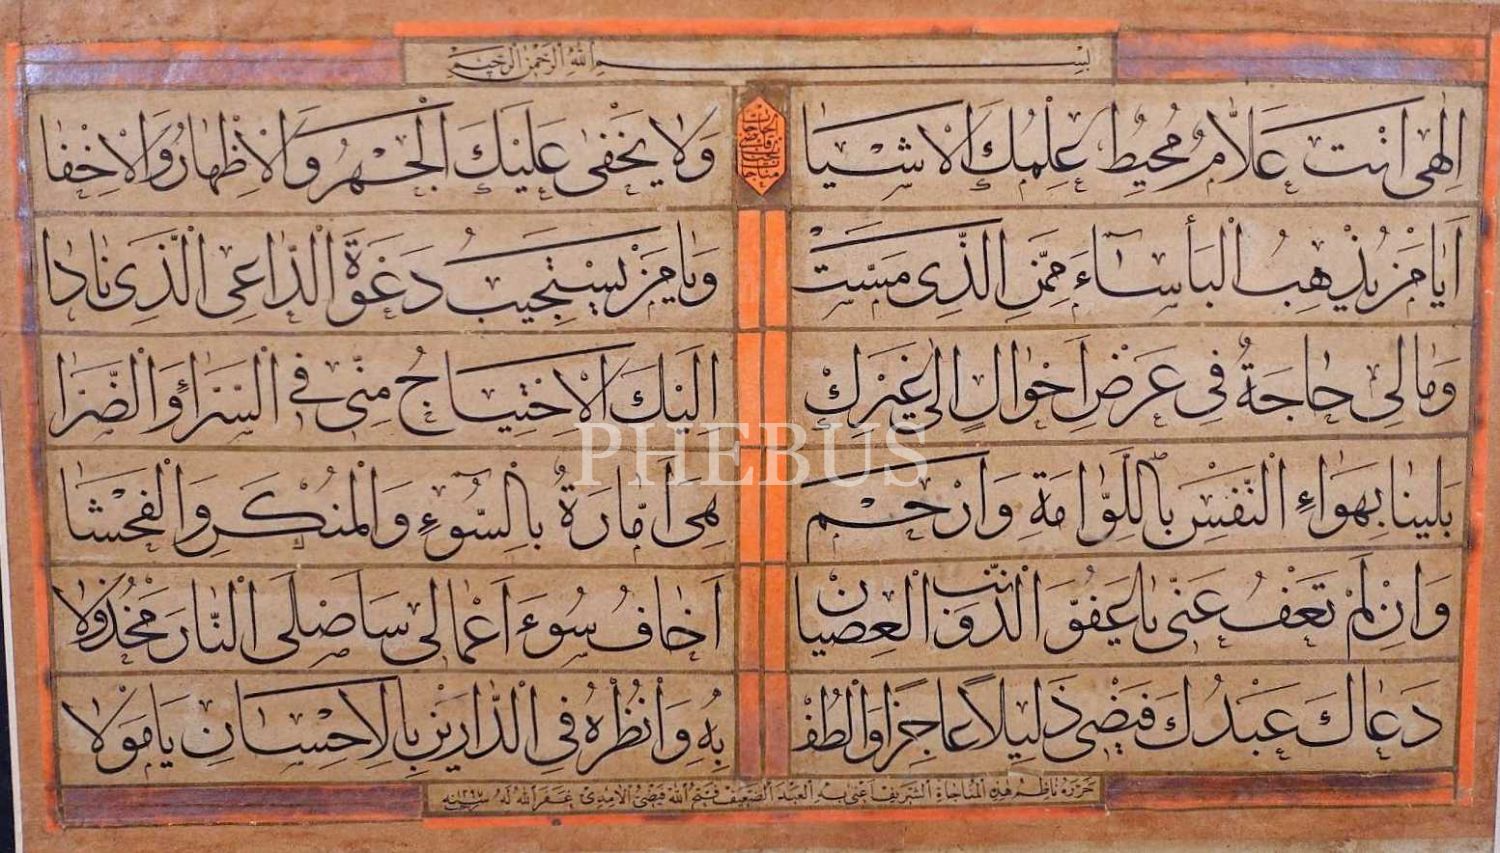 بسم الله الرحمن الرحيم
الهى انت علام محيط علمك الاشيا ولا يخفى عليك الجهر والاظهار والاخفا
ايا من يذهب البأساء ممن الذى مست ويا من يستجيب دعوة الداعى الذى نادا
ومالى حاجة فى عرض احوال الى غيرك اليك الاحتياج منى فى السراؤ والضرا
بلينا بهواء النفس باللوامة وارحم هى امارة بالسوء والمنكر والفحشا
وان لم تعف عنى يا عفو الذنب والعصيان اخاف سوء اعمالى ساصلى النار مخذولا
دعاك عبدك فيضى ذليلا عاجزا والطف به وانظره فى الدارين بالاحسان يا مولا
حرره ناظم هذه المناجاة الشريف اعنى به العبد الضعيف فتح الله فيضى الامدى غفر الله له سنه ١٢٩٧
PHEBUS